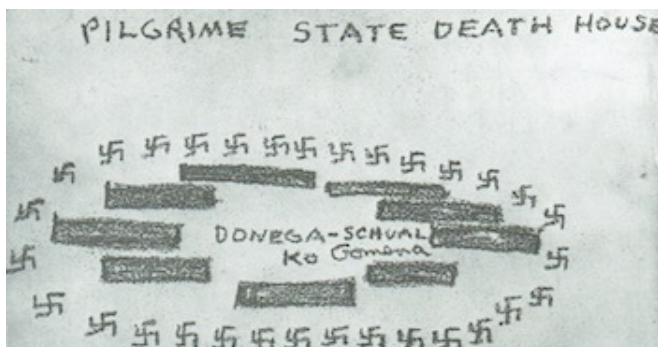 PILGRIME STATE DEATH HOUSE
DONEGA-SCHUAL
KO Gomena